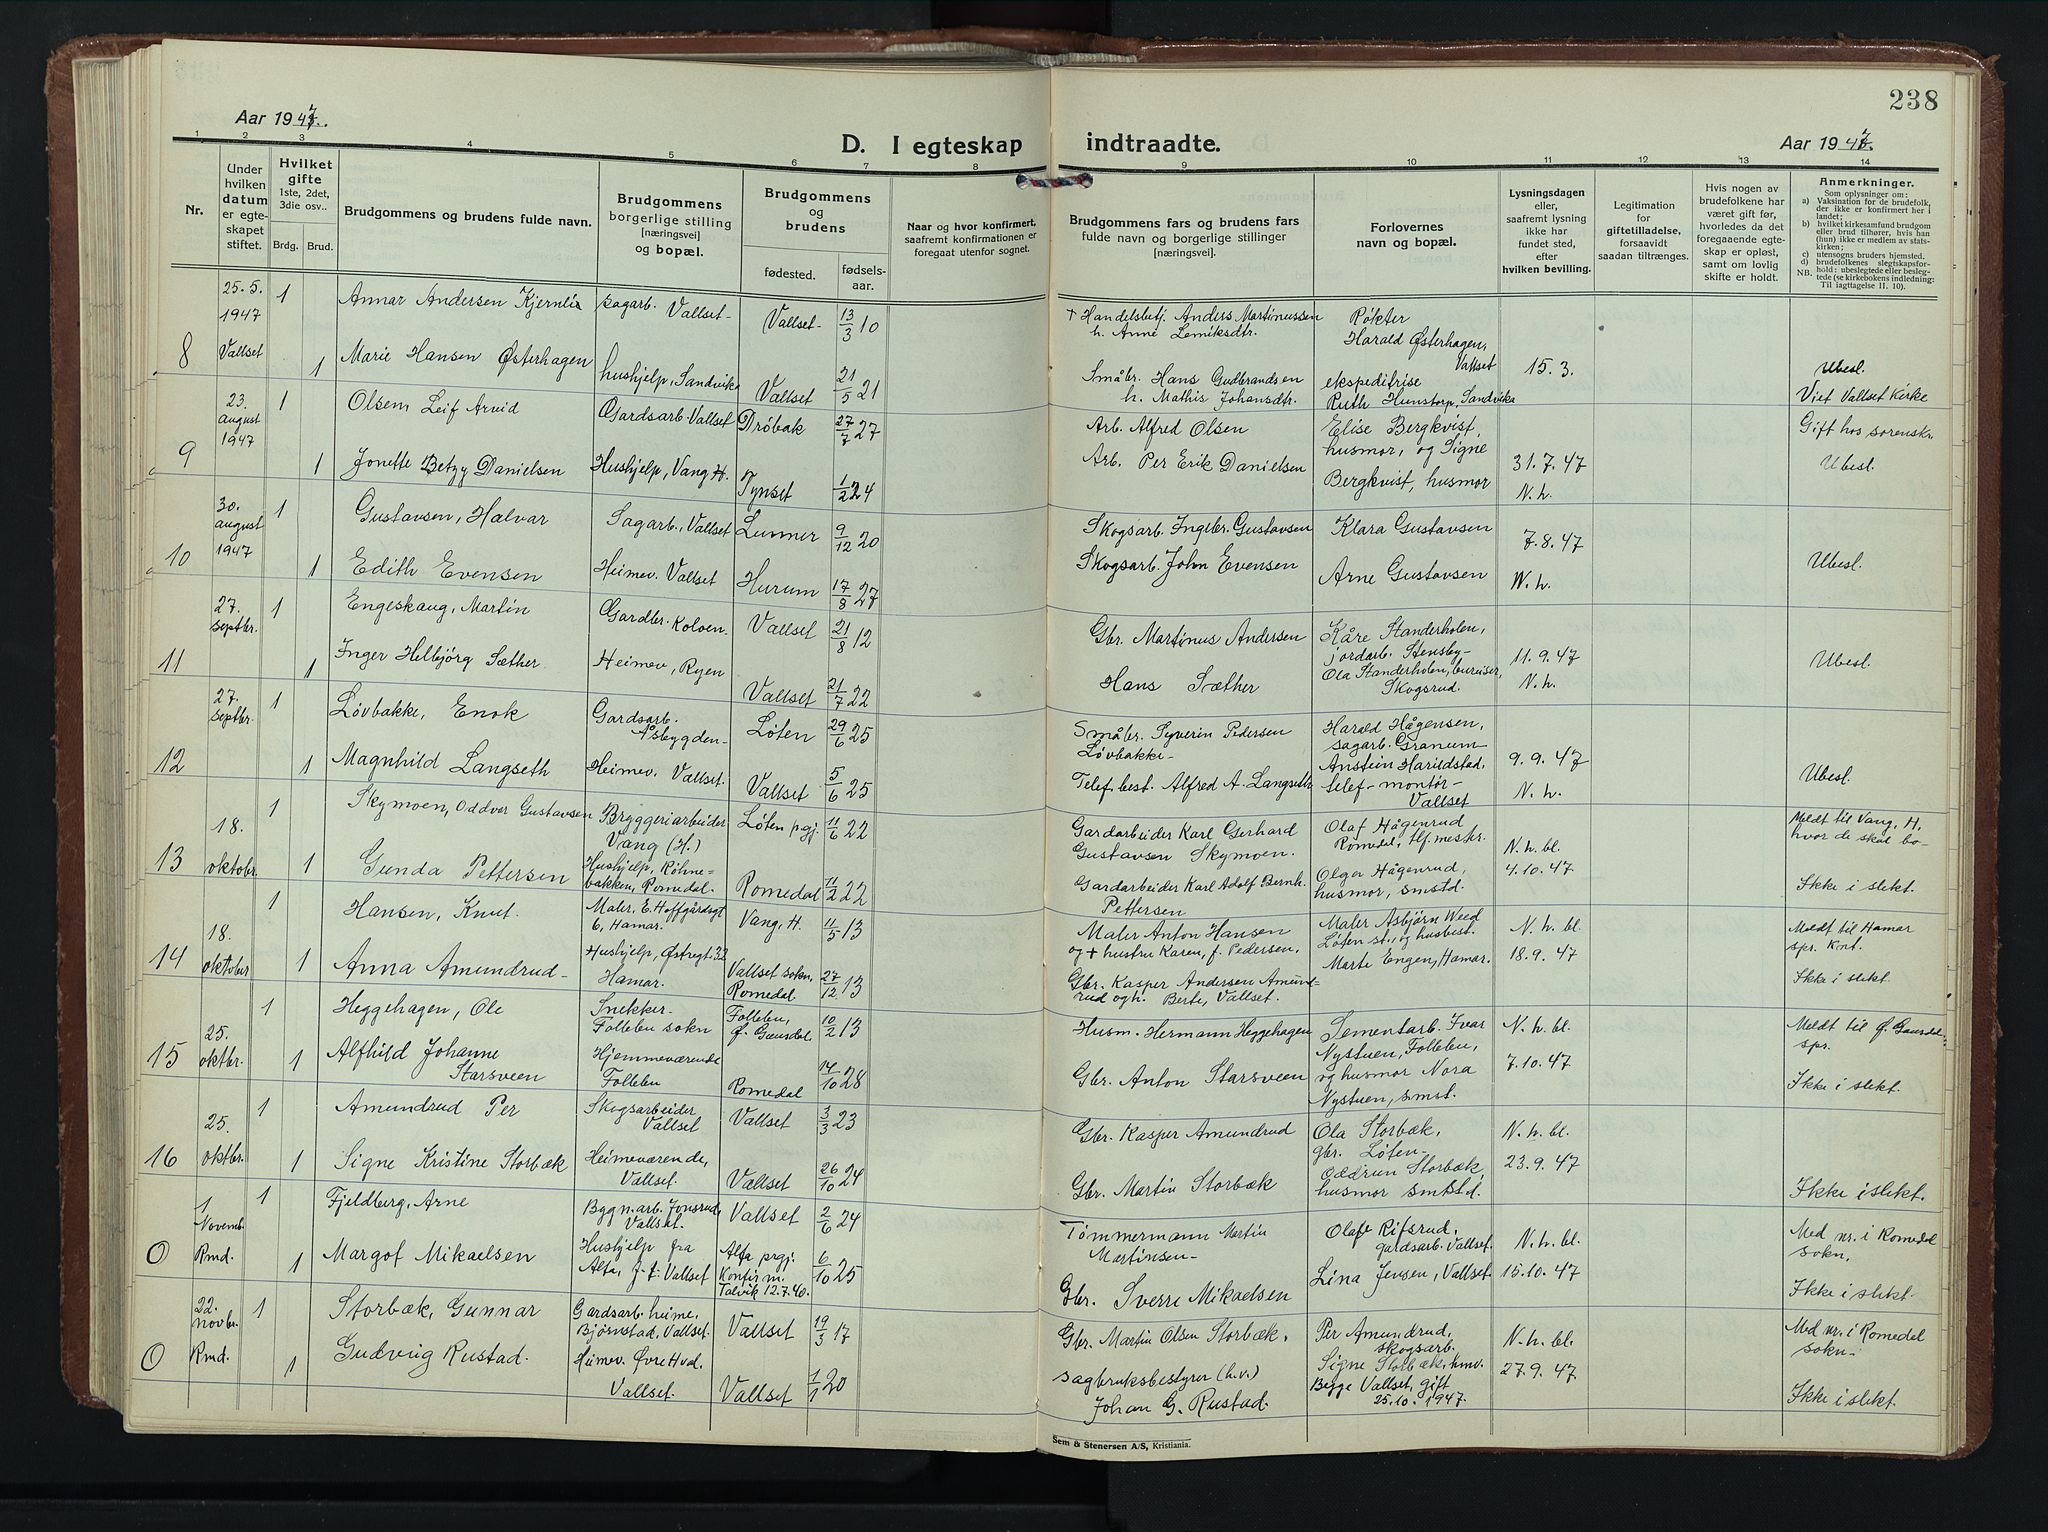 238
Aar 1947.
D. I egteskap indtraadte.
Aar 1947.
1 2 3 4 5 6 7 8 9 10 11 12 13 14
Nr.
Under hvilken datum er egteskapet stiftet.
Hvilket gifte 1ste, 2det, 3die osv..
Brdg. Brud.
Brudgommens og brudens fulde navn.
Brudgommens borgerlige stilling [næringsvei] og bopæl.
Brudgommens og brudens
fødested. fødsels-aar.
Naar og hvor konfirmert, saafremt konfirmationen er foregaat utenfor sognet.
Brudgommens fars og brudens fars fulde navn og borgerlige stillinger [næringsvei].
Forlovernes navn og bopæl.
Lysningsdagen eller, saafremt lysning ikke har fundet sted, efter hvilken bevilling.
Legitimation for giftetilladelse, forsaavidt saadan tiltrænges.
Hvis nogen av brudefolkene har været gift før, hvorledes da det foregaaende egteskap er opløst, samt om lovlig skifte er holdt.
Anmerkninger.
Som oplysninger om:
a) Vaksination for de brudefolk, der ikke er konfirmert her i landet;
b) hvilket kirkesamfund brudgom eller brud tilhører, hvis han (hun) ikke er medlem av statskirken;
c) utensogns bruders hjemsted.
d) brudefolkenes slegtskapsforhold: ubeslegtede eller beslegtede (se kirkebokens indledning: Til iagttagelse 11. 10).
NB.
8 25.5. 1947 Vallset
1 Annar Andersen Kjernlie sagarb. Vallset Vallset 13/3 10
+ Handelsbetj. Anders Martinussen
h. Anne Lemiksdtr.
Røkter
Harald Østerhagen,
Vallset
1 Marie Hansen Østerhagen hushjelp, Sandvika Vallset 21/5 21
Småbr. Hans Gudbrandsen
h. Mathis Johansdtr.
ekspeditrise
Ruth Hunstorp, Sandvika
15.3.
Ubesl.
Viet Vallset Kirke
9 23. august 1947
1 Olsen, Leif Arvid Gardsarb. Vallset Drøbak 27/7 27
Arb. Alfred Olsen
Elise Bergkvist,
husmor, og Signe
Bergkvist, husmor
Gift hos sorenskr.
1 Jonette Betzy Danielsen Hushjelp, Vang H. Tynset 1/2 24
Arb. Per Erik Danielsen
31.7.47
N.h.
Ubesl.
10 30. august 1947
1 Gustavsen, Halvar Sagarb., Vallset Lunner 9/12 20
Skogsarb. Ingebr. Gustavsen
Klara Gustavsen
7.8.47
1 Edith Evensen Heimev. Vallset Hurum 17/8 27
Skogsarb. John Evensen
Arne Gustavsen
N.h.
Ubesl.
11 27. septbr.
1 Engeskaug, Martin Gardbr. Kolven. Vallset 21/8 12
Gbr. Martinus Andersen
Kåre Standerholen,
jordarb. Stensby-
Ola Standerholen, bureiser,
Skogsrud.
1 Inger Helbjørg Sæther Heimev, Ryen Vallset 21/7 22
Hans Sæther
11.9.47
N.h.
Ubesl.
12 27. septbr.
1 Løvbakke, Enok Gardsarb. Åsbygden- Løten 29/6 25
Småbr. Syverin Pedersen
Løvbakke-
Harald Hågensen,
sagarb. Granum-
Anstein Harildstad,
telef-montør-
Vallset
1 Magnhild Langseth Heimev. Vallset. Vallset 5/6 25
Telef.best. Alfred A. Langseth
9.9.47
N.h.
Ubesl.
13 18. oktober.
1 Skymoen, Oddvar Gustavsen Bryggeriarbeider Vang (H.) Løten pgj. 11/6 22
Gardarbeider Karl Gerhard
Gustavsen Skymoen.
Olaf Hågenrud
Romedal, tlf.mester.
Meldt til Vang, H.
hvor de skal bo-
1 Gunda Pettersen Hushjelp, Røhnebakken, Romedal. Romedal 11/2 22
Gardarbeider Karl Adolf Bernh.
Pettersen
Olger Hågenrud,
husmor, smstd.
N.h.bl.
4.10.47
Ikke i slekt.
14 18. oktober
1 Hansen, Knut. Maler, E. Hoffgårdsgt 6, Hamar. Vang, H. 11/5 13
Maler Anton Hansen
og + hustru Karen, f. Pedersen,
Maler Asbjørn Weed
Løten st., og husbest.
Marte Engen, Hamar.
N.h.bl.
18.9.47
Meldt til Hamar
spr. Kont.
1 Anna Amundrud- Hushjelp, Østregt. 32 Hamar. Vallset sokn, Romedal 27/12 13
Gbr. Kasper Andersen Amund-
rud og h. Berte, Vallset.
Ikke i slekt.
15 25. oktbr.
1 Heggehagen, Ole Snekker- Follebu sokn Follebu, Ø. Gausdal 10/2 13
Husm. Hermann Heggehagen
Sementarb. Ivar
Nystuen, Follebu,
og husmor Nora
Nystuen, smst.
N.h.bl.
7.10.47
Meldt til Ø. Gausdal
spr.
1 Alfhild Johanne Starsveen Hjemmeværende Follebu Romedal 14/10 28
Gbr. Anton Starsveen
Ikke i slekt.
16 25. oktbr.
1 Amundrud Per Skogsarbeider Vallset Vallset 3/3 23
Gbr. Kasper Amundrud
Ola Storbæk,
gbr. Løten-
Oddrun Storbæk,
husmor smstd.
N.h.bl.
23.9.47
1 Signe Kristine Storbæk Heimeværende, Vallset. Vallset 26/10 24
Gbr. Martin Storbæk
Ikke i slekt.
0 1 Novemb. Rmd.
1 Fjeldberg, Arne Bygn.arb. Jonsrud, Vallset. Vallset 2/6 24
Tømmermann Martin
Martinsen-
Olaf Rifsrud,
gardsarb. Vallset.
Lina Jensen, Vallset
N.h.bl.
15.10.47
Med nr. i Romedal
sokn,
1 Margot Mikaelsen Hushjelp fra Alta, p.t. Vallset Alta prgj. Konfirm. Talvik 12.7.40. 6/10 25
Gbr. Sverre Mikaelsen
Ikke i slekt.
0 22. novbr. Rmd.
1 Storbæk, Gunnar Gardsarb. heime, Bjørnstad, Vallset. Vallset 19/3 17
Gbr. Martin Olsen Storbæk.
Per Amundrud,
skogsarb.
Signe Storbæk, hmv.
Begge Vallset, gift
25.10.1947.
N.h.bl.
27.9.47
Med nr. i Romedal
sokn-
1 Gudvug Rustad. Heimev. Øvre Hval, Vallset. Vallset 1/1 20
sagbruksbestyrer (h.v.)
Johan G. Rustad.
Ikke i slekt.
Sem & Stenersen A/S, Kristiania.